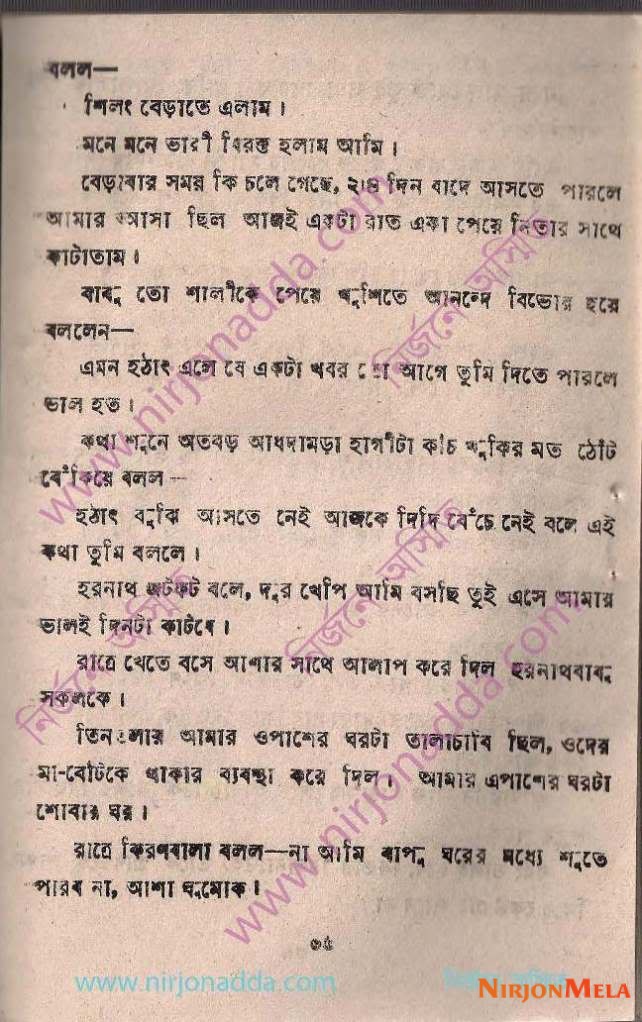 বলল—
শিলং বেড়াতে এলাম।
মনে মনে ভারী বিরক্ত হলাম আমি।
বেড়াবার সময় কি চলে গেছে, ২।৪ দিন বাদে আসতে পারলে
আমার আসা ছিল আজই একটা রাত একা পেয়ে নিতার সাথে
কাটাতাম।
বাবু তো শালীকে পেয়ে খুশিতে আনন্দে বিভোর হয়ে
বললেন—
এমন হঠাৎ এলে যে একটা খবর তো আগে তুমি দিতে পারলে
ভাল হত।
কথা শুনে অতবড় আধদামড়া মাগীটা কচি খুকির মত ঠোঁট
বেঁকিয়ে বলল—
হঠাৎ বুঝি আসতে নেই আজকে দিদি বেঁচে নেই বলে এই
কথা তুমি বললে।
হরনাথ ঝটকট বলে, দূর খেপি আমি বলছি তুই এসে আমার
ভালই দিনটা কাটবে।
রাত্রে খেতে বসে আশার সাথে আলাপ করে দিল হরনাথবাবু
সকলকে।
তিনতলার আমার ওপাশের ঘরটা তালাচাবি ছিল, ওদের
মা-বেটিকে থাকার ব্যবস্থা করে দিল। আমার এপাশের ঘরটা
শোবার ঘর।
রাত্রে কিরণবালা বলল—না আমি বাপু ঘরের মধ্যে শুতে
পারব না, আশা ঘুমোক।
৩৫
www.nirjonadda.com
নির্জনে অস্মিত
NIRJONMELA
www.nirjonadda.com
নির্জনে অস্মিত
www.nirjonadda.com
নির্জনে অস্মিত
নির্জনে অস্মিত